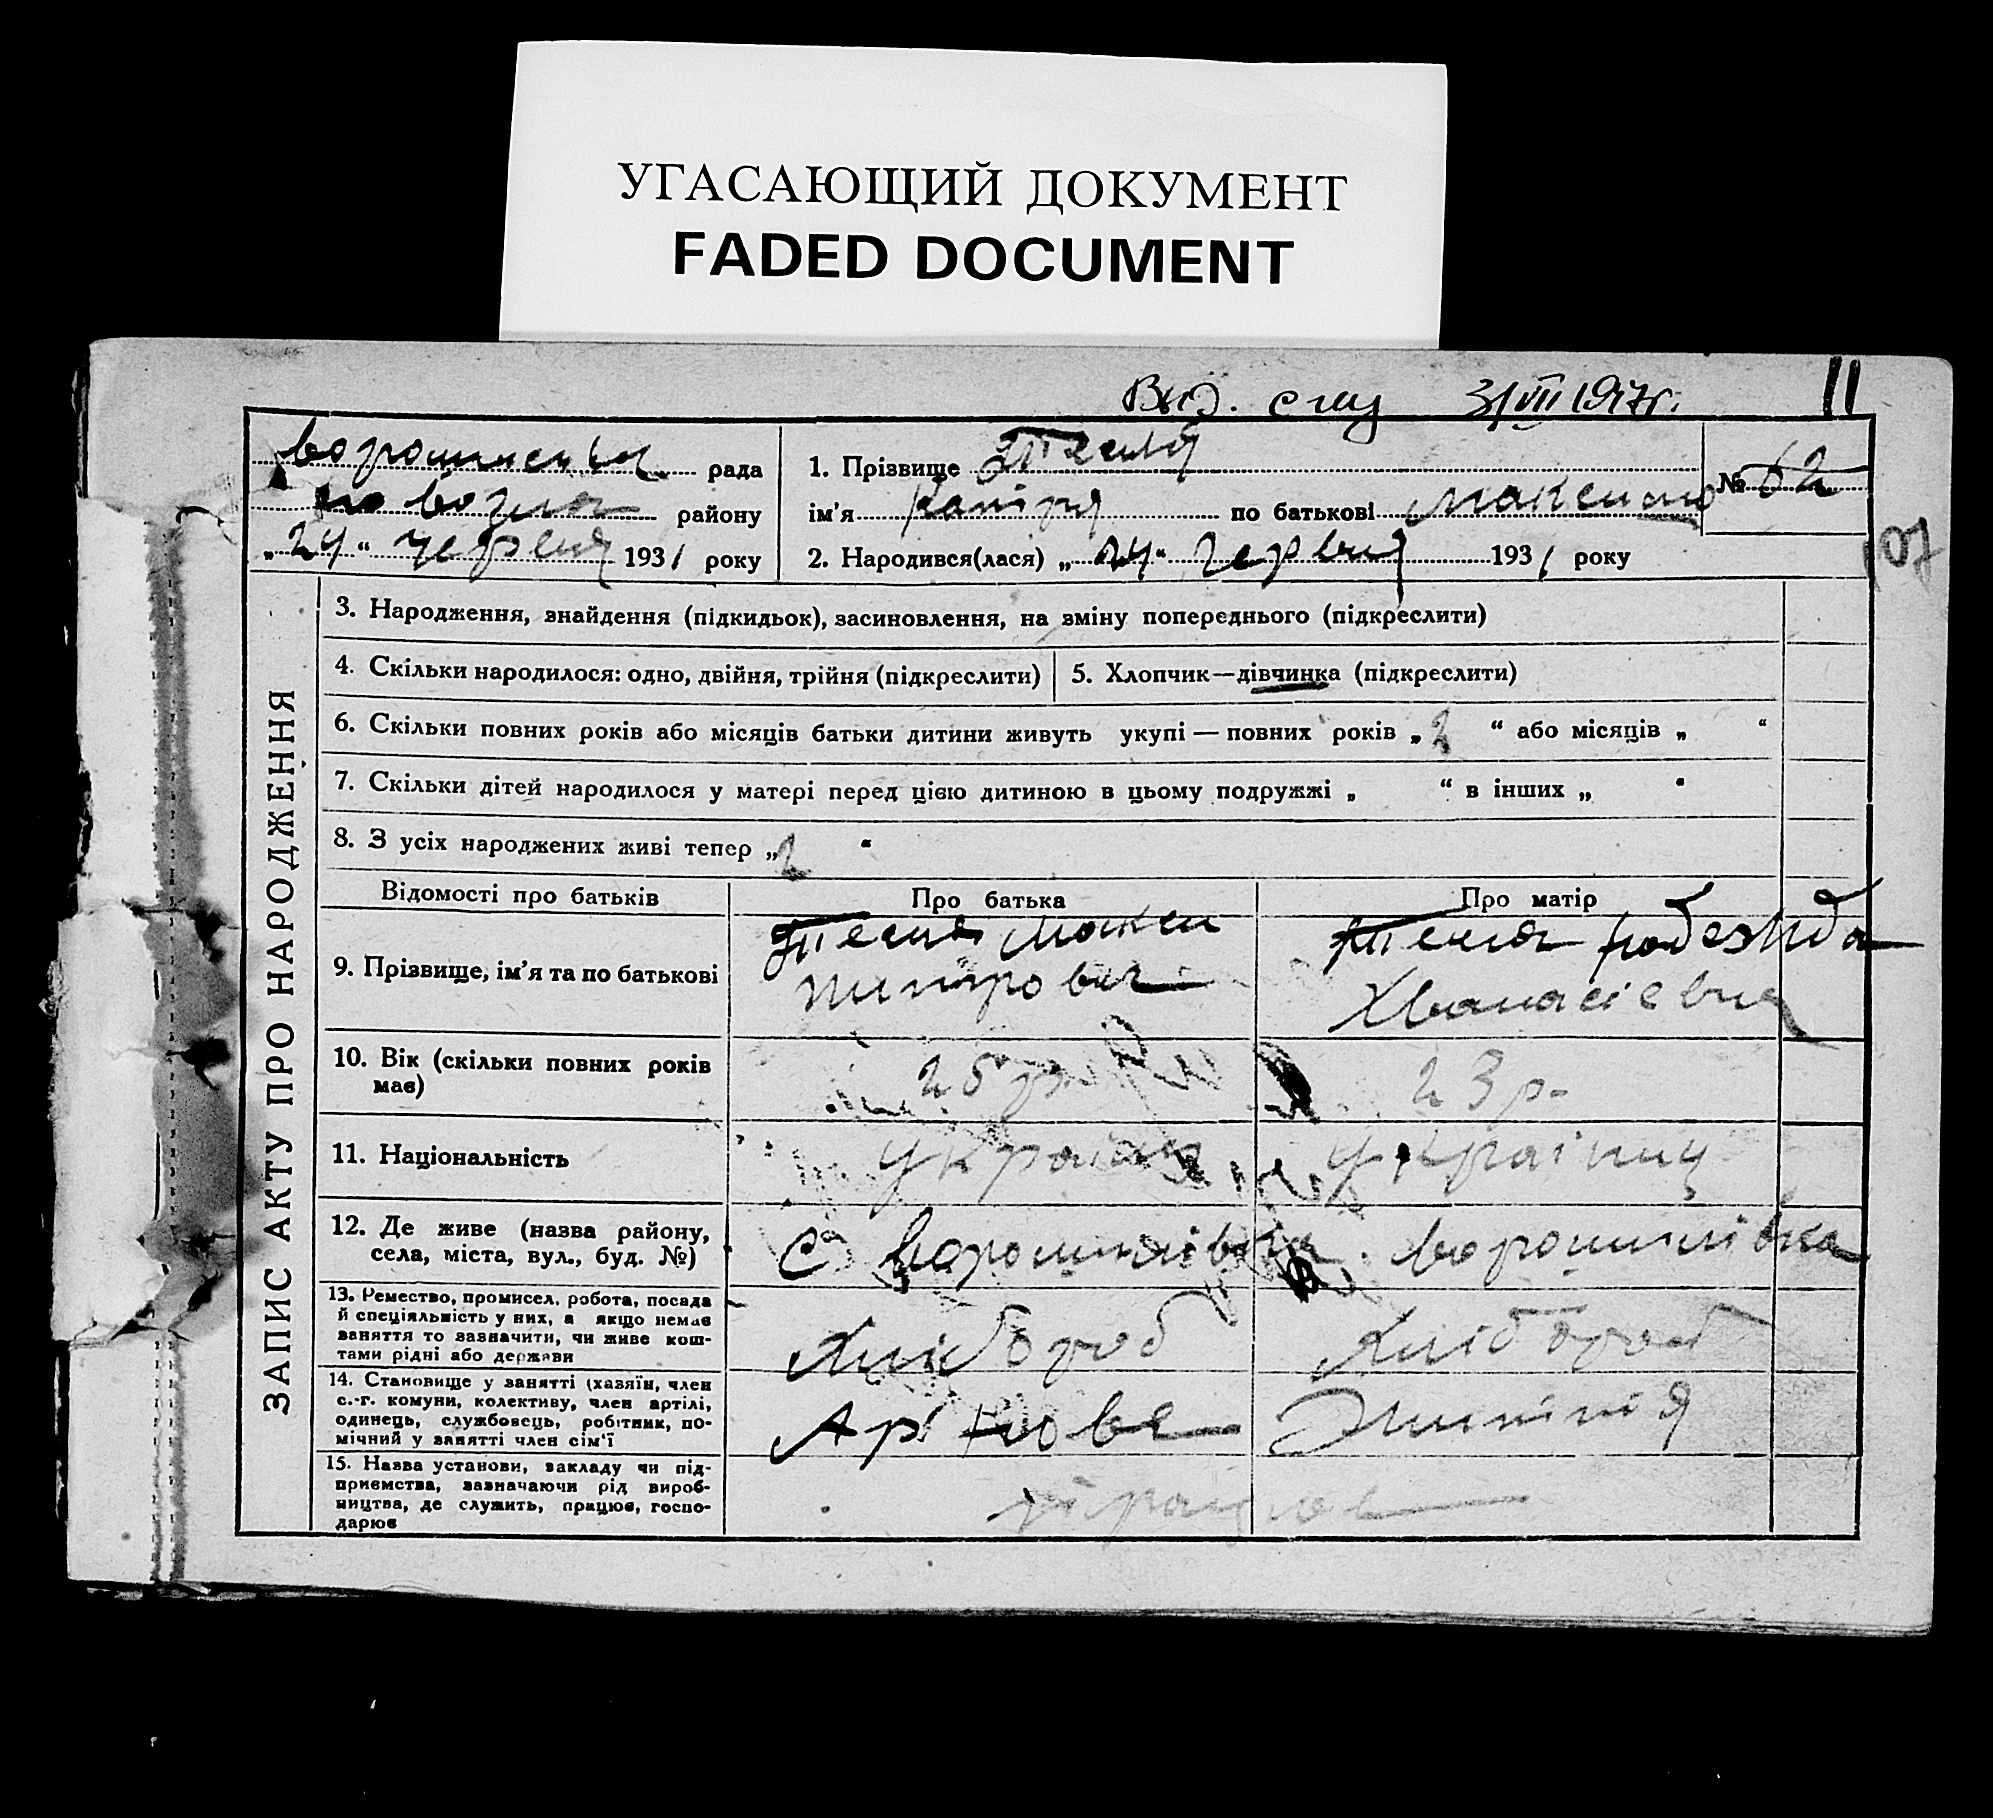 УГАСАЮЩИЙ ДОКУМЕНТ
FADED DOCUMENT
11
рада
району
„24“ червня 1931 року
1. Прізвище Тесля
ім'я по батькові
№ 62
2. Народився(лася) „24“ червня 1931 року
107
ЗАПИС АКТУ ПРО НАРОДЖЕННЯ
3. Народження, знайдення (підкидьок), засиновлення, на зміну попереднього (підкреслити)
4. Скільки народилося: одно, двійня, трійня (підкреслити)
5. Хлопчик—дівчинка (підкреслити)
6. Скільки повних років або місяців батьки дитини живуть укупі — повних років „2“ або місяців „ “
7. Скільки дітей народилося у матері перед цією дитиною в цьому подружжі „ “ в інших „ “
8. З усіх народжених живі тепер „2“
Відомості про батьків
Про батька
Про матір
9. Прізвище, ім'я та по батькові
Тесля
Тесля
10. Вік (скільки повних років має)
25 р.
23 р.
11. Національність
12. Де живе (назва району, села, міста, вул., буд. №)
с Ворошилівка
Ворошилівка
13. Ремество, промисел, робота, посада й спеціяльність у них, а якщо немає заняття то зазначити, чи живе коштами рідні або держави
Хлібороб
Хлібороб
14. Становище у занятті (хазяїн, член с.-г. комуни, колективу, член артілі, одинець, службовець, робітник, помічний у занятті член сім'ї
15. Назва установи, закладу чи підприємства, зазначаючи рід виробництва, де служить, працює, господарює